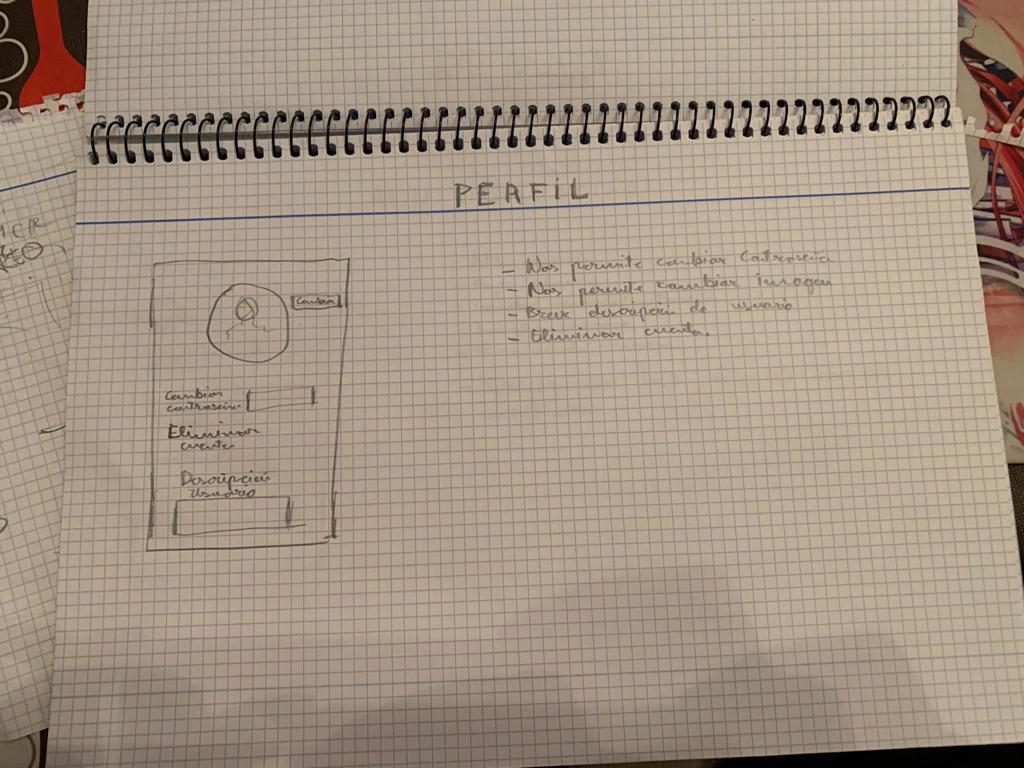 PERFIL
Cambiar
Cambiar
contraseña
Eliminar
cuenta
Descripción
Usuario
- Nos permite cambiar Catraseña
- Nos permite cambiar imagen
- Breve descripción de usuario
- Eliminar cuenta.